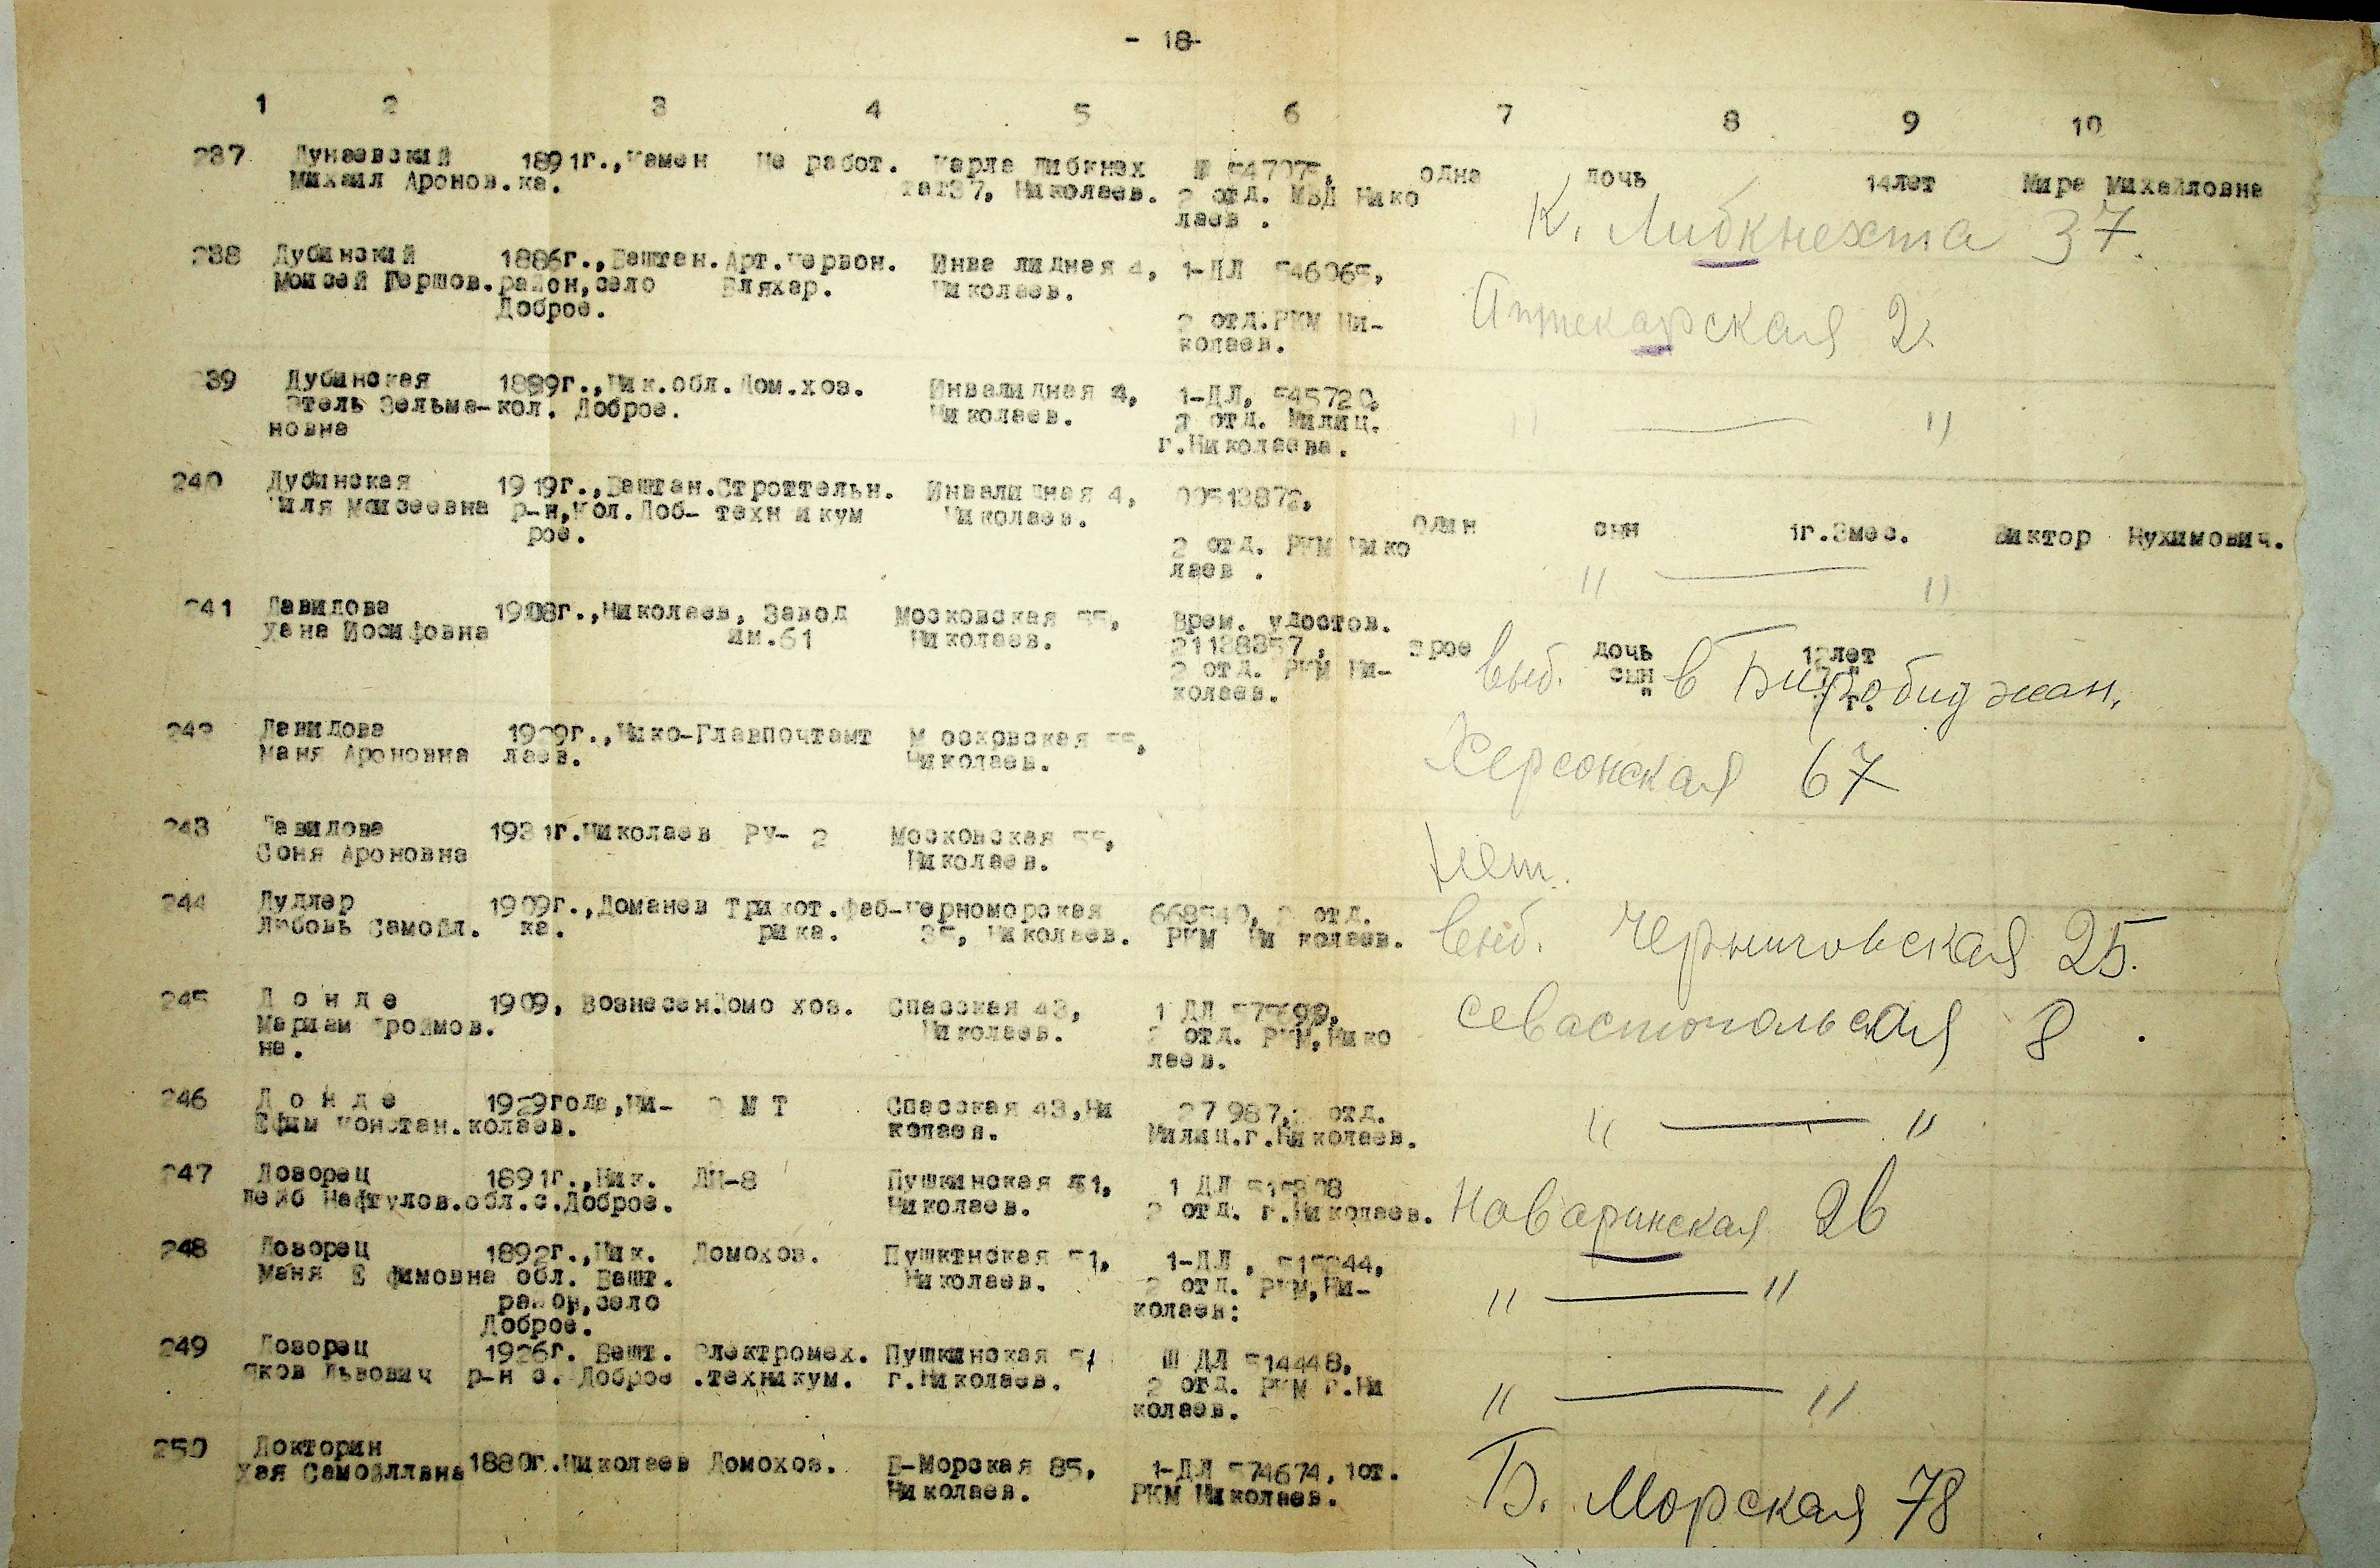 - 18-
1 2 3 4 5 6 7 8 9 10
237 Дунаевский 1891г.,Камен Не работ. Карла Либкнех Ш 547075, одна дочь 14лет Мира Михайловна
Михаил Аронов. ка. та137, Николаев. 2 отд. МВД Нико
лаев .
К. Либкнехта 37.
238 Дубинский 1886г.,Баштан. Арт.червон. Инва лидная 4, 1-ДЛ 546065,
Моисей Гершов. район,село Бляхар. Николаев.
Доброе. 2 отд.РКМ Ни-
колаев.
Аптекарская 2.
239 Дубинская 1889г.,Ник.обл. Дом.хоз. Инвалидная 4, 1-ДЛ, 545720,
Этель Зельма- кол. Доброе. Николаев. 2 отд. Милиц.
новна г.Николаева.
" — "
240 Дубинская 1919г.,Баштан. Строттельн. Инвалидная 4, 00513872,
Моисеевна р-н,кол.Доб- техникум Николаев. один сын 1г.3мес. Виктор Нухимович.
рое. 2 отд. РКМ Нико
лаев .
" — "
241 Давидова 1908г.,Николаев, Завод Московская 55, Врем. удостов.
Хана Иосифовна им.61 Николаев. 21138357, трое дочь 12лет
2 отд. РКМ Ни- сын "
колаев. "
выб. в Биробиджан.
242 Давидова 1929г.,Нико- Главпочтамт Московская 55,
Маня Ароновна лаев. Николаев.
Херсонская 67
243 Давидова 1931г.Николаев РУ- 2 Московская 55,
Соня Ароновна Николаев.
Нет.
244 Дудлер 1909г.,Доманев Трикот.фаб- Черноморская 668540, 2 отд.
Любовь Самойл. ка. рика. 35, Николаев. РКМ Ни колаев.
выб. Черниговская 25.
245 Д о н д е 1909, Вознесен. Домо хоз. Спасская 43, 1 ДЛ
Мариам Фроимов. Николаев. 2 отд. РКМ,Нико
на. лаев.
Севастопольская 8.
246 Д о н д е 1929года,Ни- М Т Спасская 43,Ни 27987,2 отд.
Ефим Констан. колаев. колаев. Милиц.г.Николаев.
" — "
247 Дозорец 1891г.,Ник. ДИ-8 Пушкинская 51, 1 ДЛ
Лейб Нафтулов. обл.с.Доброе. Николаев. 2 отд. г.Николаев.
Наваринская 2в
248 Дозорец 1892г.,Ник. Домохоз. Пушктнская 51, 1-ДЛ ,
Маня Е фимовна обл. Башт. Николаев. 2 отд. РКМ,Ни-
район,село колаев:
Доброе.
" — "
249 Дозорец 1926г. Башт. Электромех. Пушкинская 51 Ш ДЛ 514448,
Яков Львович р-н с. Доброе .техникум. г.Николаев. 2 отд. РКМ г.Ни
колаев.
" — "
250 Докторин
Хая Самойллвна 1880г.Николаев Домохоз. Б-Морская 85, 1-ДЛ 574674, 1от.
Николаев. РКМ Николаев.
Б. Морская 78